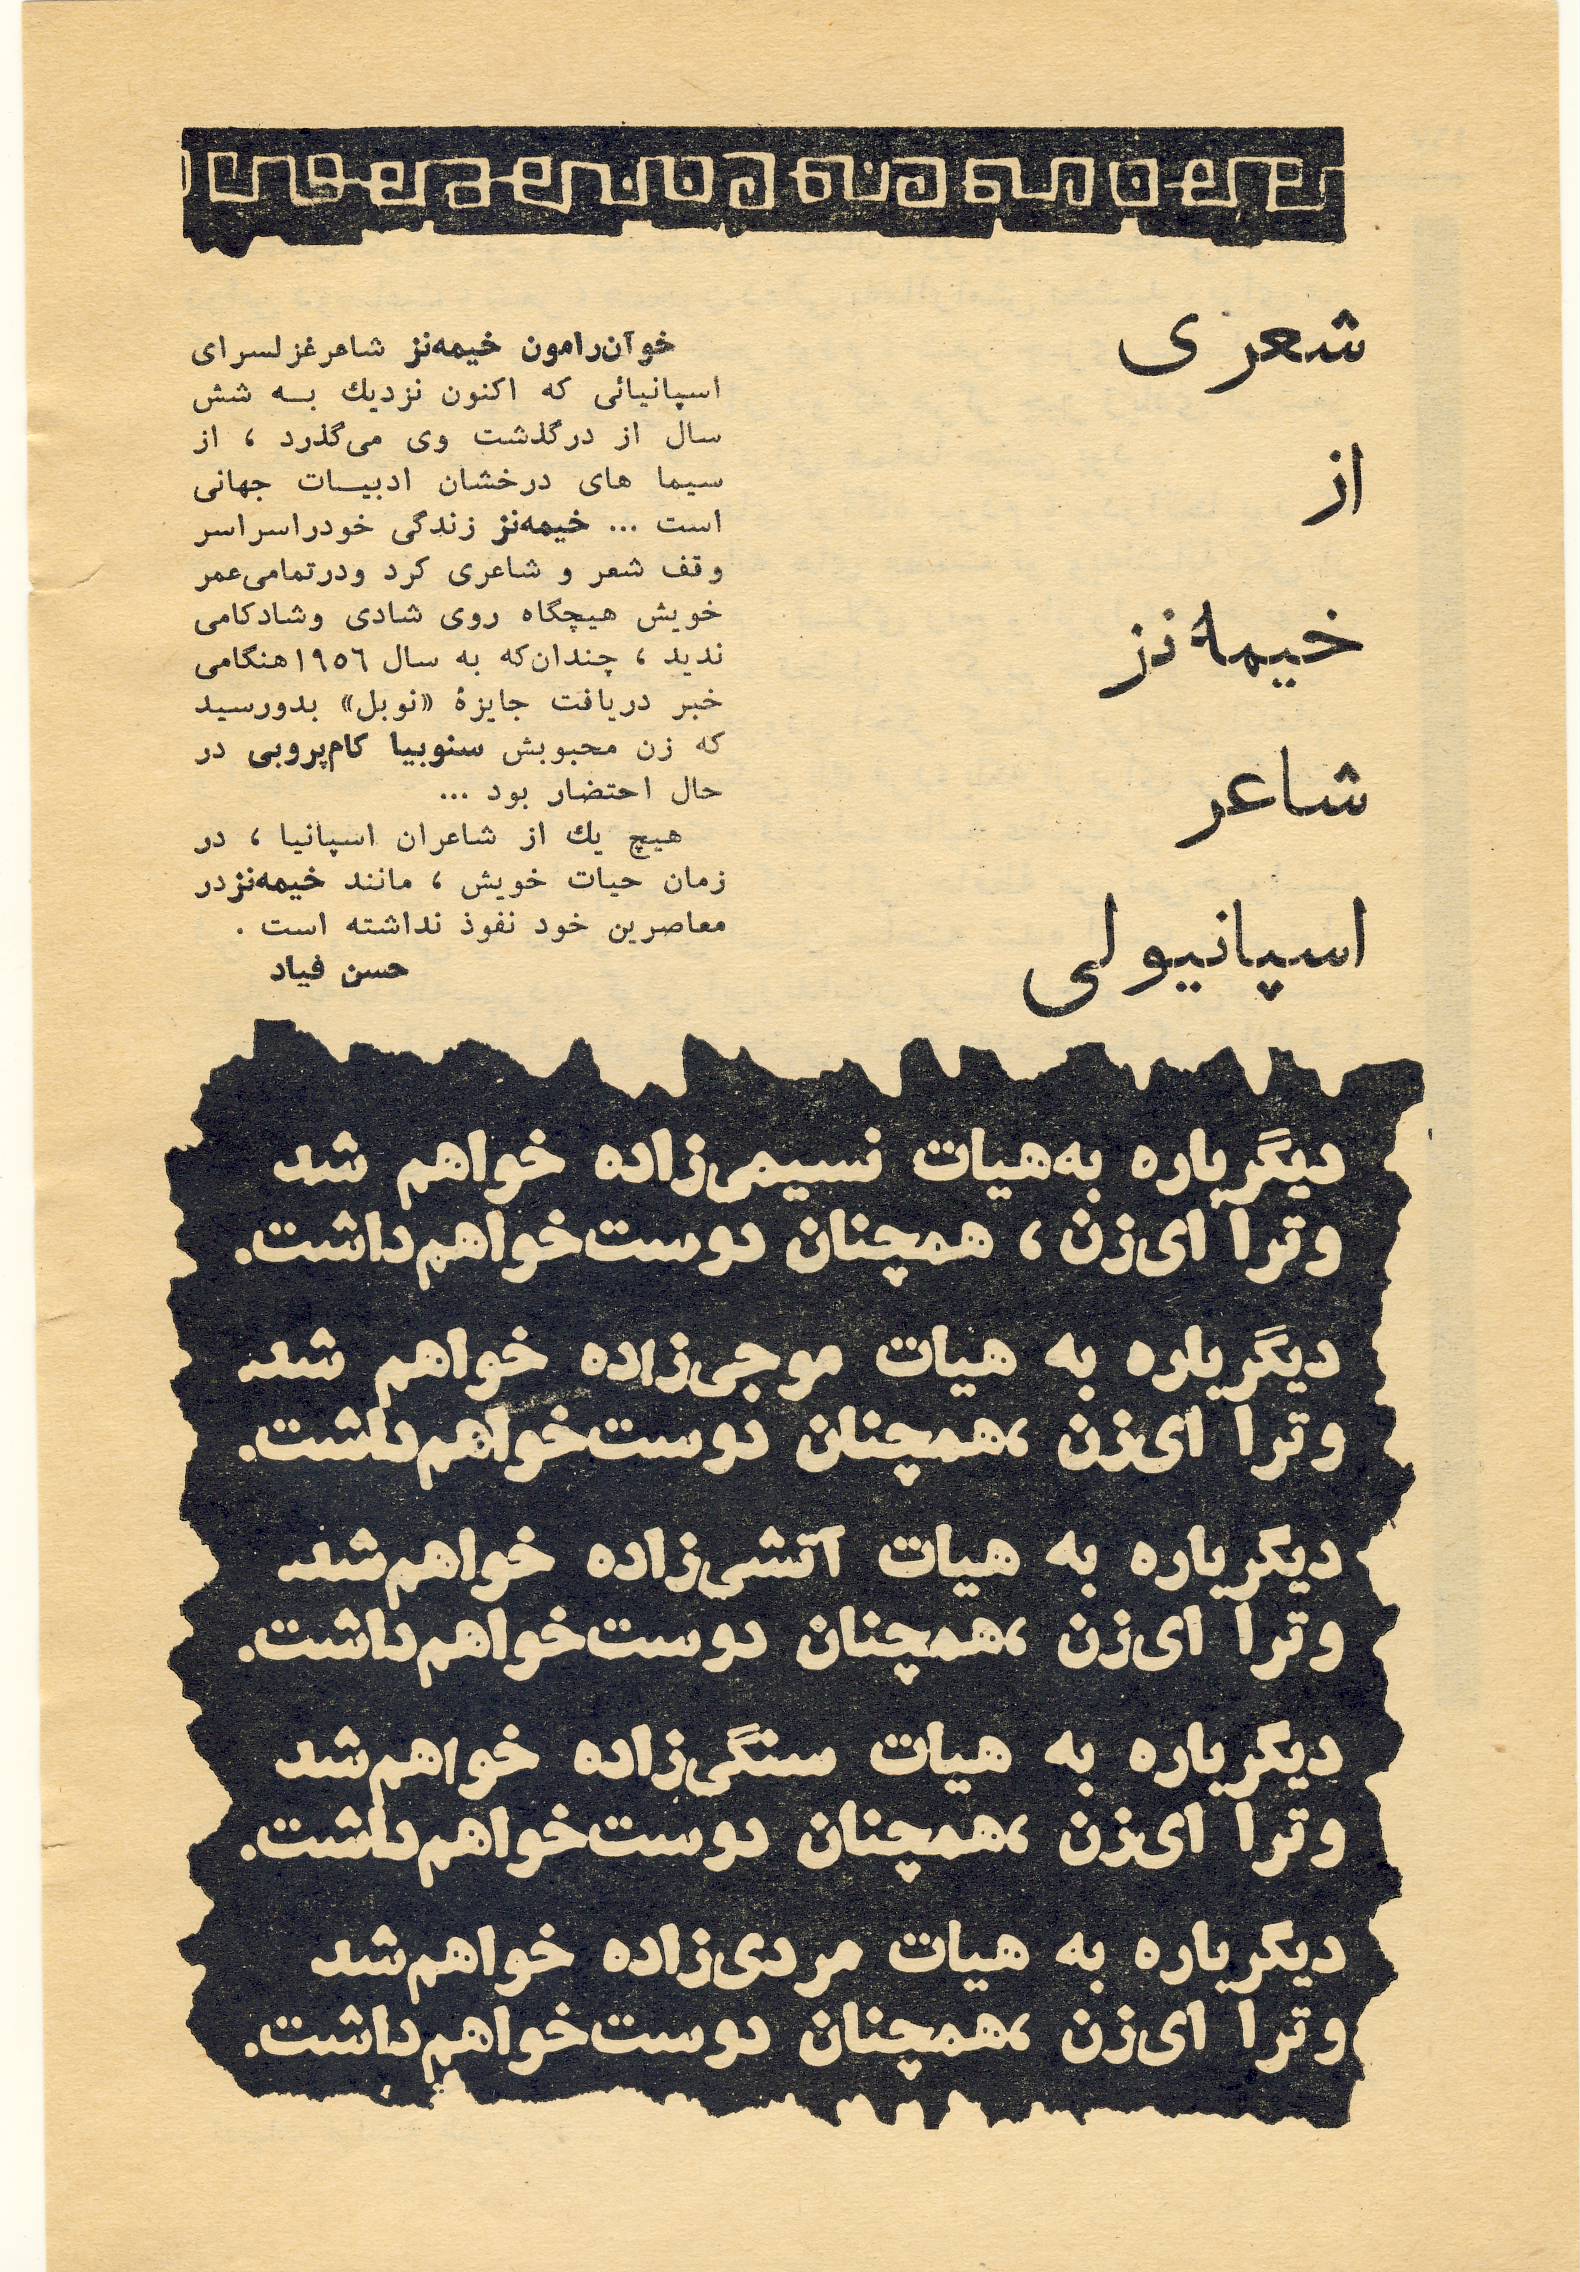 شعری
از
خیمه‌نز
شاعر
اسپانیولی
خوآن‌رامون خیمه‌نز شاعر غزلسرای
اسپانیائی که اکنون نزدیك بـه شش
سال از درگذشت وی می‌گذرد ، از
سیما های درخشان ادبیـات جهانی
است ... خیمه‌نز زندگی خودراسراسر
وقف شعر و شاعری کرد ودرتمامی‌عمر
خویش هیچگاه روی شادی وشادکامی
ندید ، چندان‌که به سال ۱۹۵۶هنگامی
خبر دریافت جایزهٔ «نوبل» بدورسید
که زن محبوبش سنوبیا کام‌پروبی در
حال احتضار بود ...
هیچ یك از شاعران اسپانیا ، در
زمان حیات خویش ، مانند خیمه‌نزدر
معاصرین خود نفوذ نداشته است .
حسن فیاد
دیگرباره به‌هیات نسیمی‌زاده خواهم شد
وترا ای‌زن ، همچنان دوست‌خواهم‌داشت.
دیگرباره به هیات موجی‌زاده خواهم شد
وترا ای‌زن ،همچنان دوست‌خواهم‌داشت.
دیگرباره به هیات آتشی‌زاده خواهم‌شد
وترا ای‌زن ،همچنان دوست‌خواهم‌داشت.
دیگرباره به هیات سنگی‌زاده خواهم‌شد
وترا ای‌زن ،همچنان دوست‌خواهم‌داشت.
دیگرباره به هیات مردی‌زاده خواهم‌شد
وترا ای‌زن ،همچنان دوست‌خواهم‌داشت.